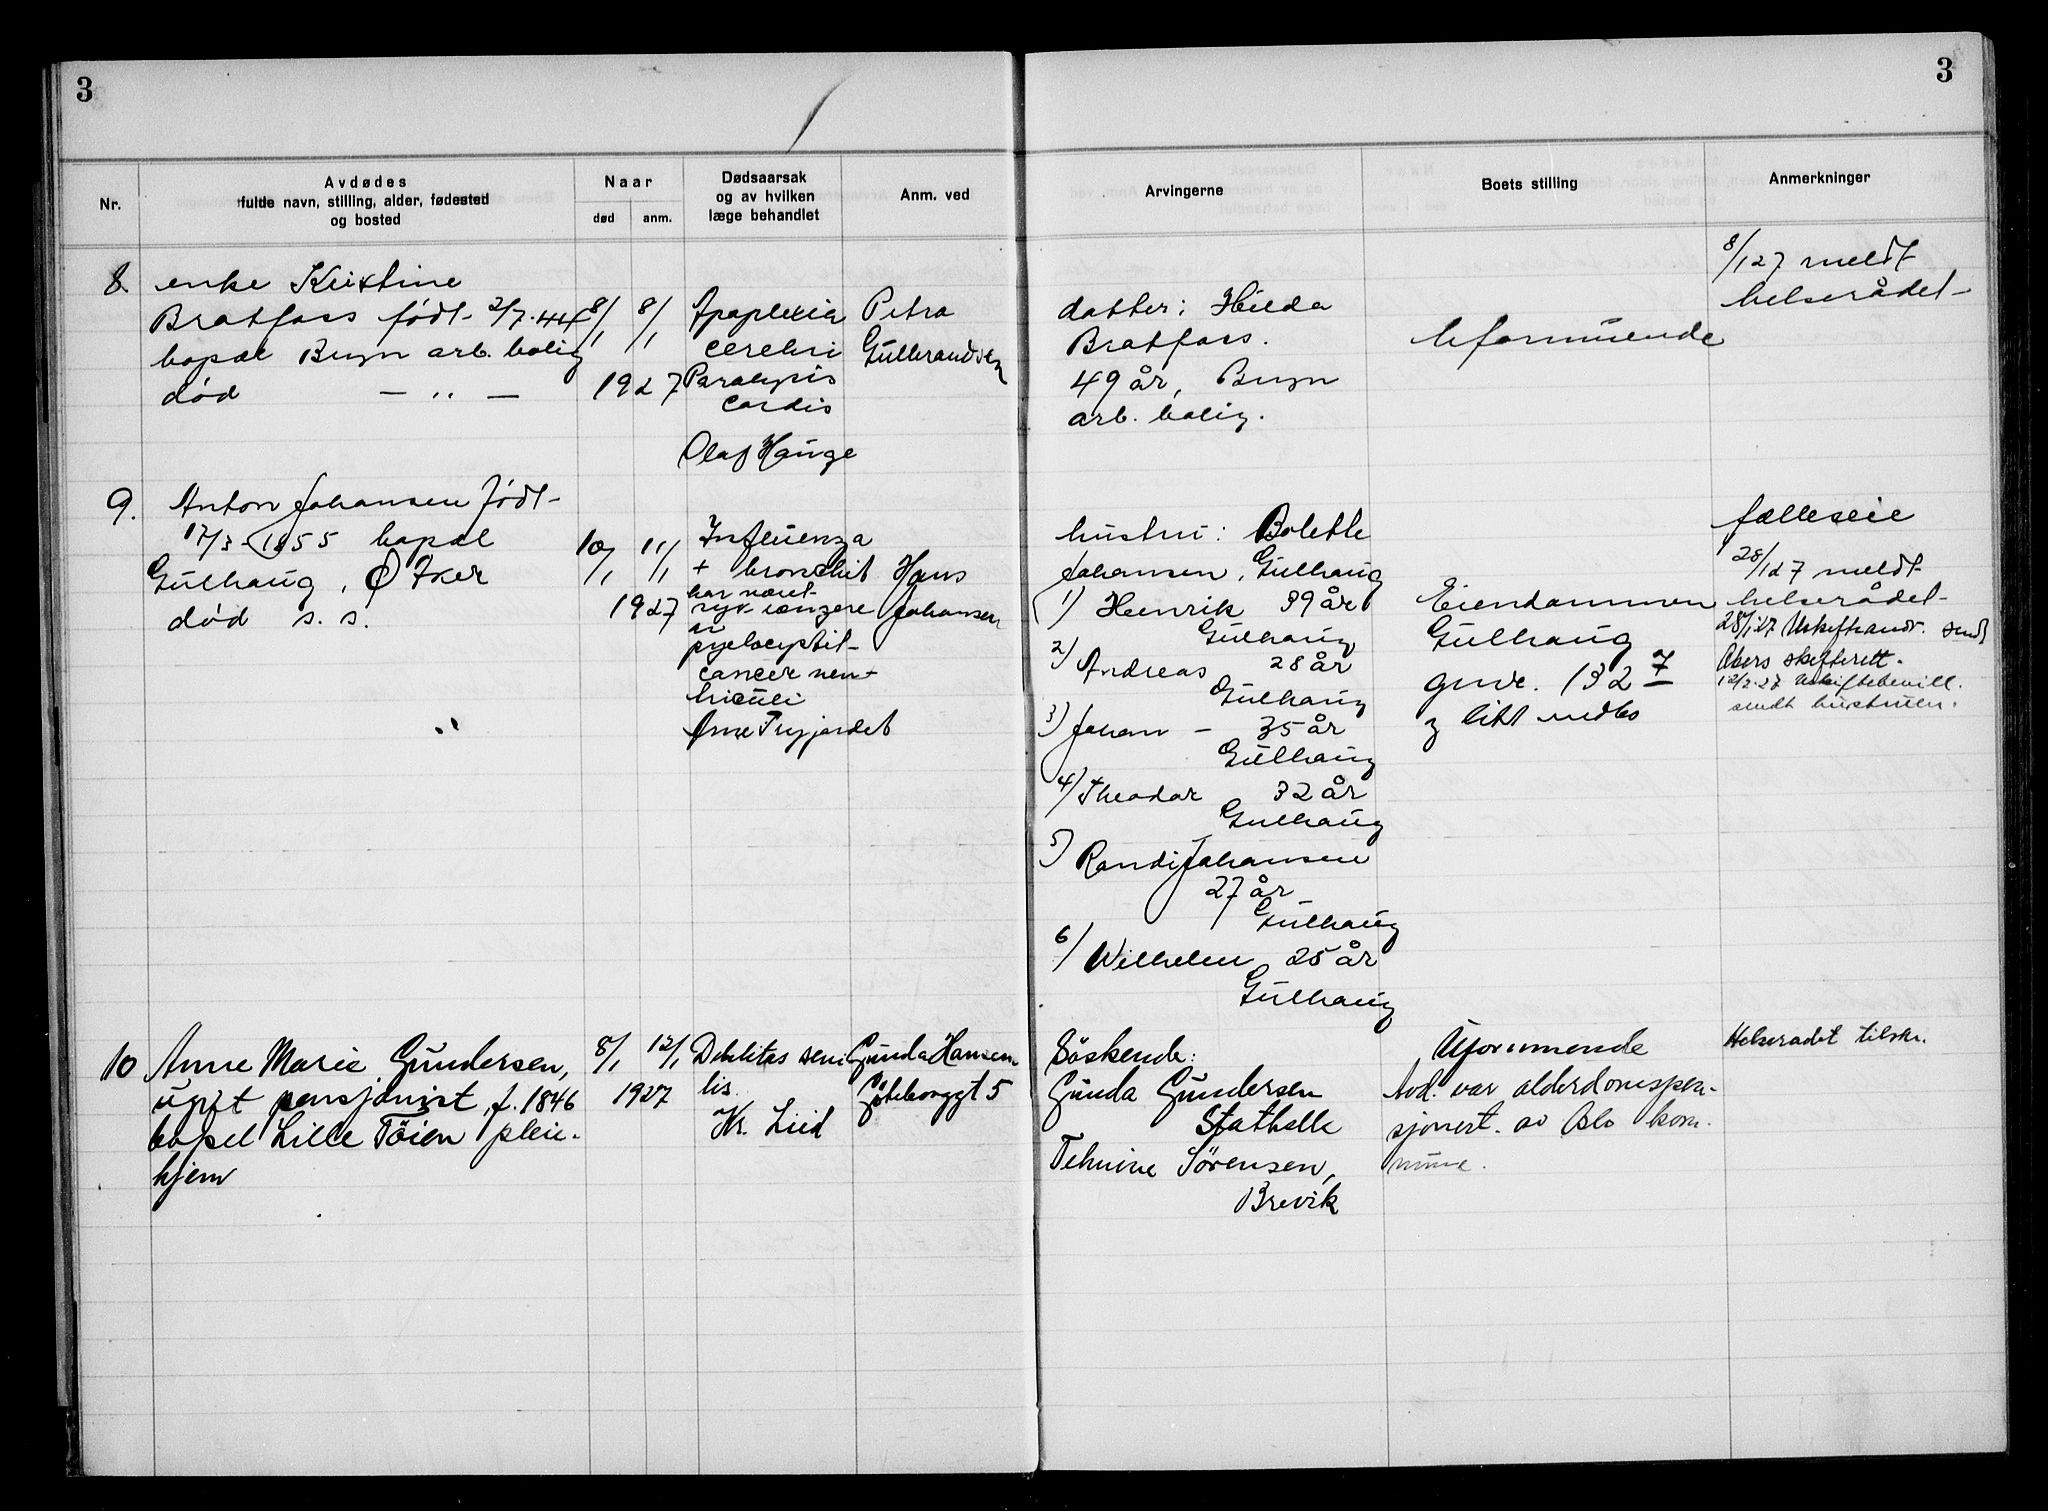 3
3
Nr.
Avdødes
fulde navn, stilling, alder, fødested
og bosted
Naar
død
anm.
Dødsaarsak
og av hvilken
læge behandlet
Anm. ved
Arvingerne
Boets stilling
Anmerkninger
8.
enke Kristine
Bratfoss født 2/7.44
bopæl Bryn arb. bolig
død — „ —
8/1 8/1
1927
Apoplexia
cerebri
Paralysis
cordis
Olaf Hauge
Petra
Gulbrandsen
datter: Hilda
Bratfoss.
49 år, Bryn
arb. bolig.
uformuende
8/1 27 meldt
helserådet
9.
Anton Johansen født
17/3 - 1855 bopæl
Gulhaug, Ø Aker
død s. s.
10/1 11/1
1927
Influenza
+ bronchit
har været
syk længere
av
pyelocystit
cancer ven-
triculi
Arne
Hans
Johansen
hustru: Bolette
Johansen, Gulhaug
1) Henrik 39 år
Gulhaug
2) Andreas 28 år
Gulhaug
3) Johan - 35 år
Gulhaug
4) Theodor 32 år
Gulhaug
5) Randi Johansen
27 år
Gulhaug
6) Wilhelm 25 år
Gulhaug
Eiendommen
Gulhaug
gnr. 132 7
og litt indbo
fælleseie
28/1 27 meldt
helserådet
28/1 27 Uskifteandr. sendt
Akers skifterett.
12/2 27 Uskiftebevill.
sendt hustruen.
10
Anne Marie Gundersen,
ugift pensjonist, f. 1846
bopel Lille Töien pleie-
hjem
8/1 12/1
1927
Debilitas seni
lis.
Kr. Lied
Gunda Hansen
Göteborggt 5
Söskende:
Gunda Gundersen
Stathelle
Telmine Sörensen,
Brevik
Uformuende
Avd. var alderdomspen-
sjonert. av Oslo kom-
mune.
Helseradet tilskr.